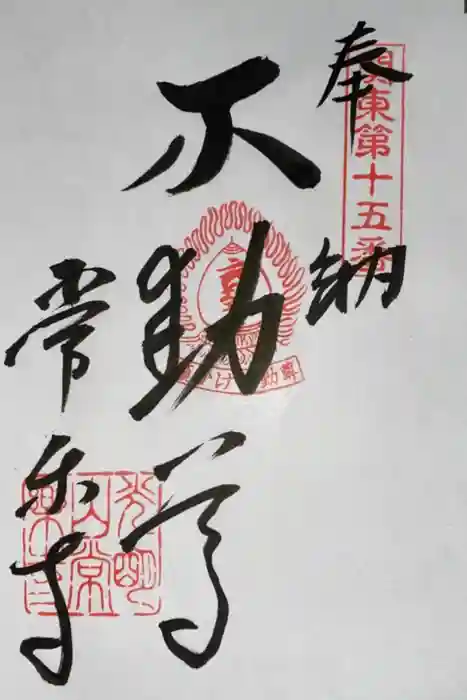 奉納
関東第十五番
不動尊
常楽寺